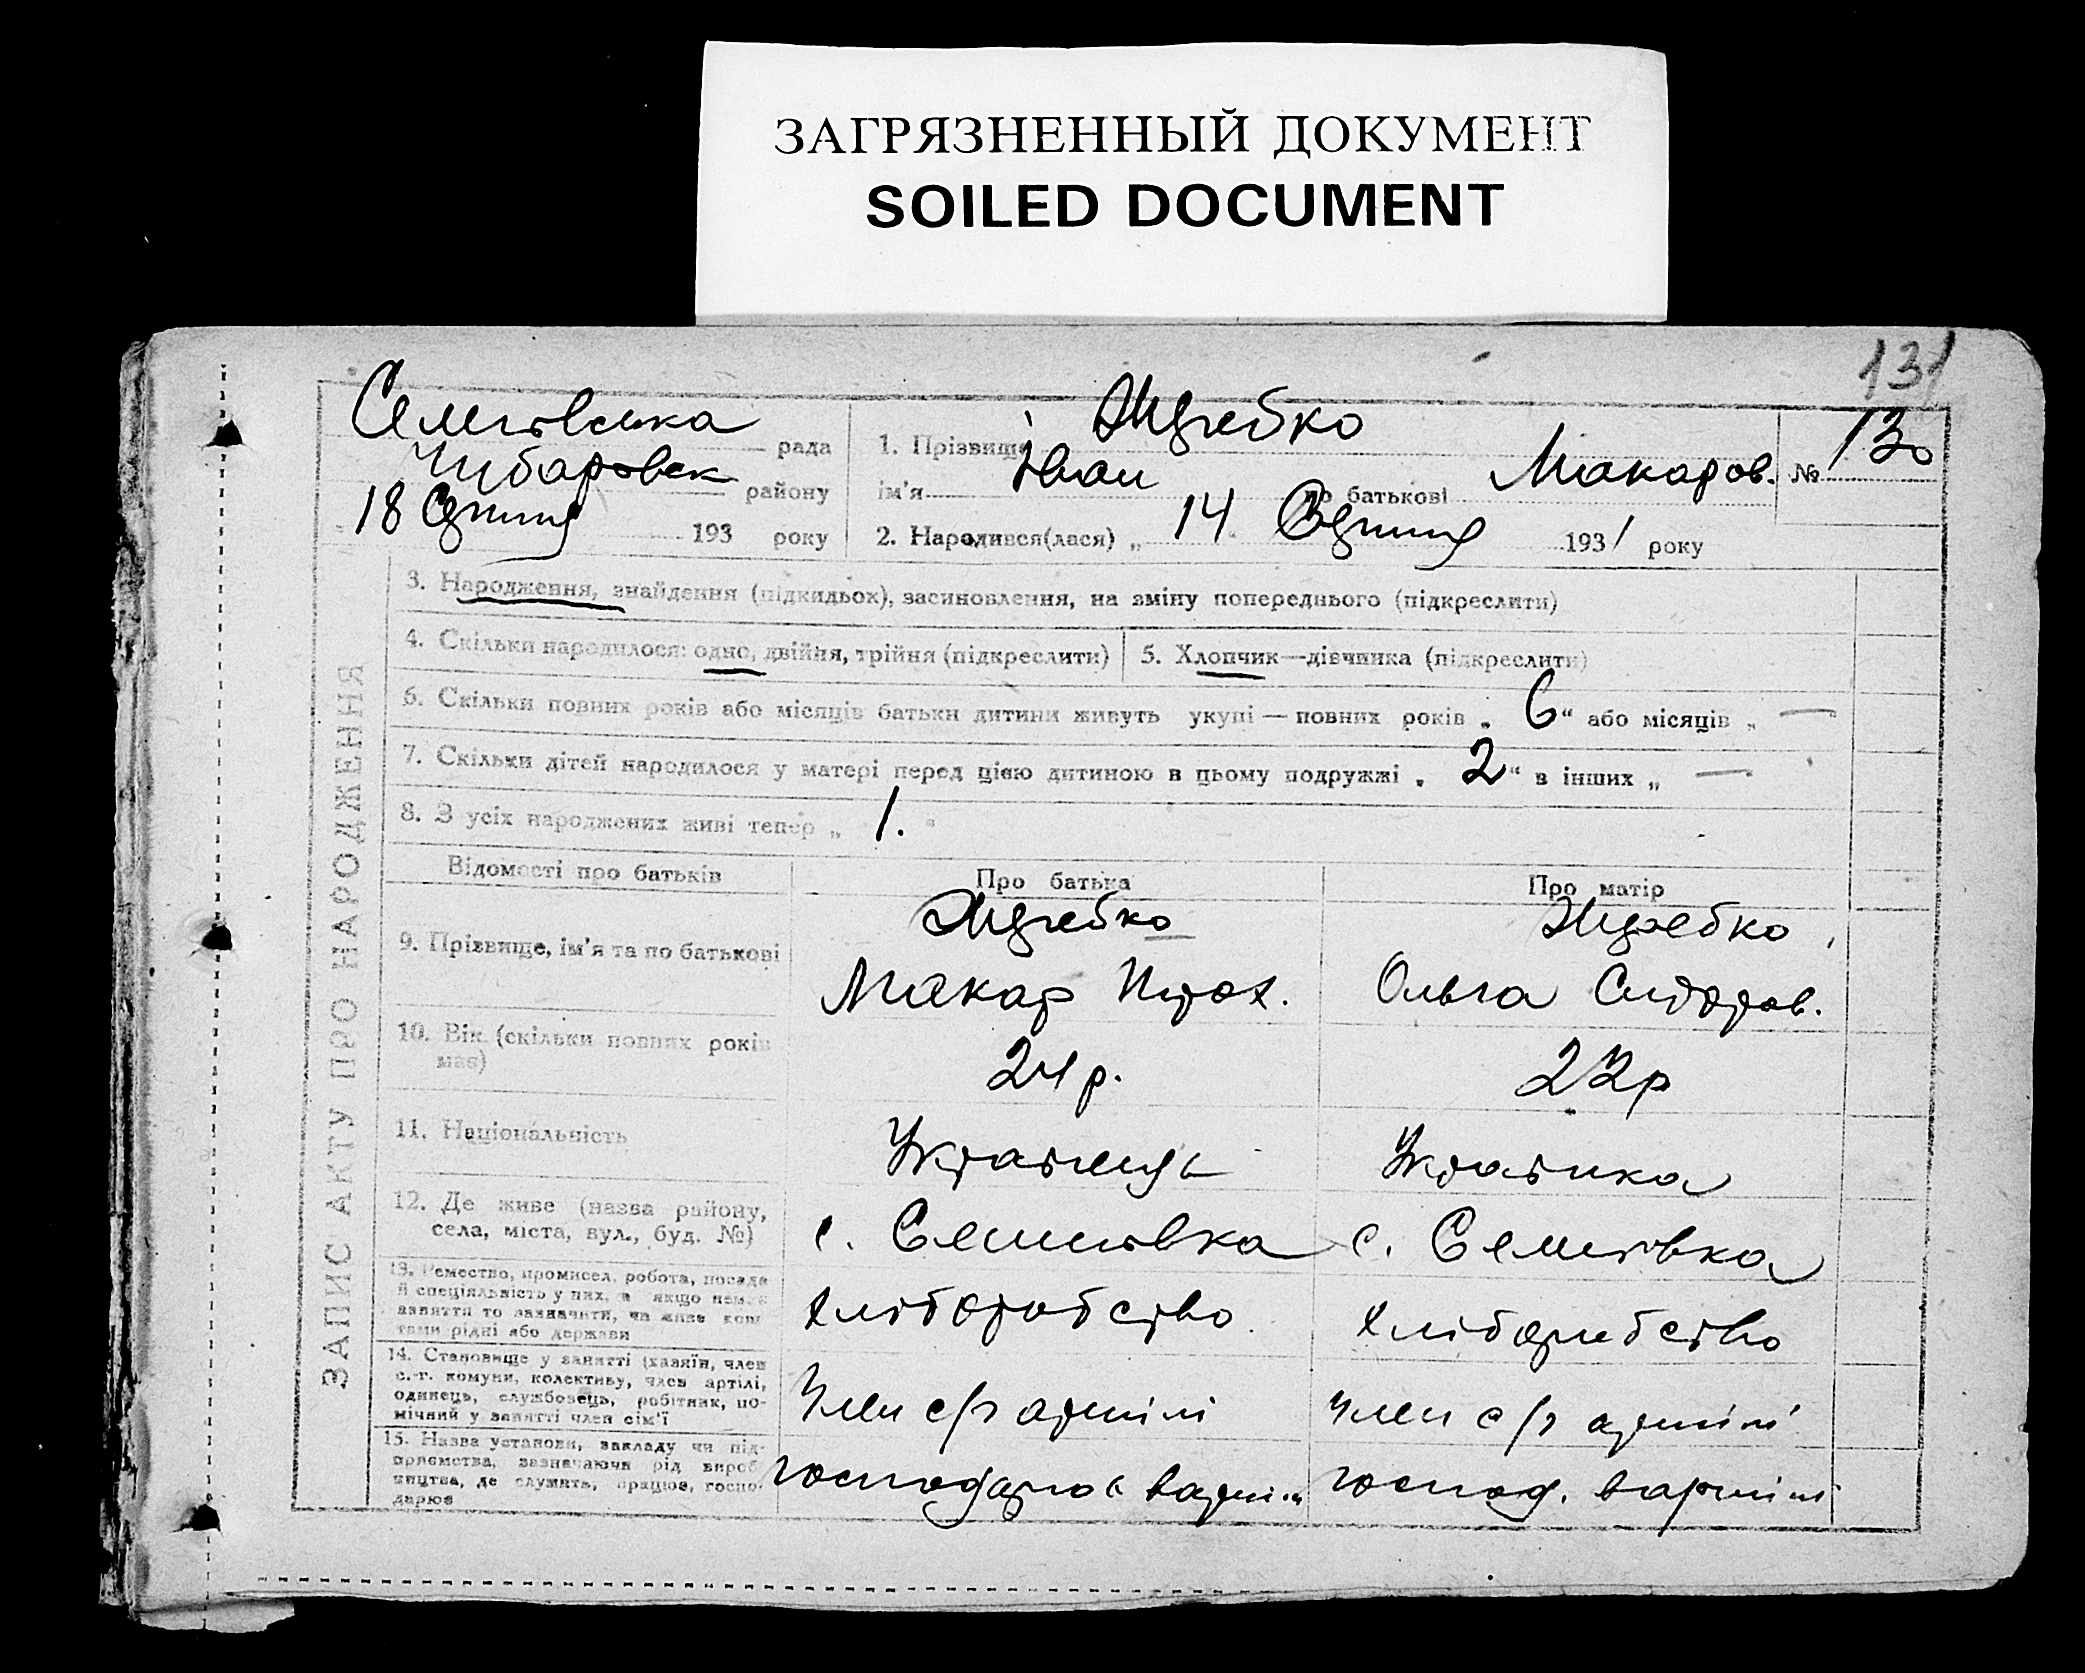 ЗАГРЯЗНЕННЫЙ ДОКУМЕНТ
SOILED DOCUMENT
131
Семгівська рада
Чубаровск району
18 Січня 193 року
1. Прізвище
ім'я Іван по батькові Макаров.
2. Народився(лася) „ 14 Січня 1931 року
№ 130
ЗАПИС АКТУ ПРО НАРОДЖЕННЯ
3. Народження, знайдення (підкидьок), засиновлення, на зміну попереднього (підкреслити)
4. Скільки народилося: одно, двійня, трійня (підкреслити)
5. Хлопчик—дівчинка (підкреслити)
6. Скільки повних років або місяців батьки дитини живуть укупі — повних років „ 6 “ або місяців „ —
7. Скільки дітей народилося у матері перед цією дитиною в цьому подружжі „ 2 “ в інших „ —
8. З усіх народжених живі тепер „ 1. “
Відомості про батьків
Про батька
Про матір
9. Прізвище, ім'я та по батькові
Макар Прох.
Ольга Сидоров.
10. Вік (скільки повних років має)
24 р.
22 р
11. Національність
Українець
Українка
12. Де живе (назва району, села, міста, вул., буд. №)
с.
с.
13. Ремество, промисел, робота, посада й спеціяльність у них, а якщо немає заняття то зазначити, чи живе коштами рідні або держави
хліборобство
хліборобство
14. Становище у занятті (хазяїн, член с.-г. комуни, колективу, член артілі, одинець, службовець, робітник, помічний у занятті член сім'ї
Член с/г артілі
Член с/г артілі
15. Назва установи, закладу чи підприємства, зазначаючи рід виробництва, де служить, працює, господарює
господарює в артілі
господ. в артілі